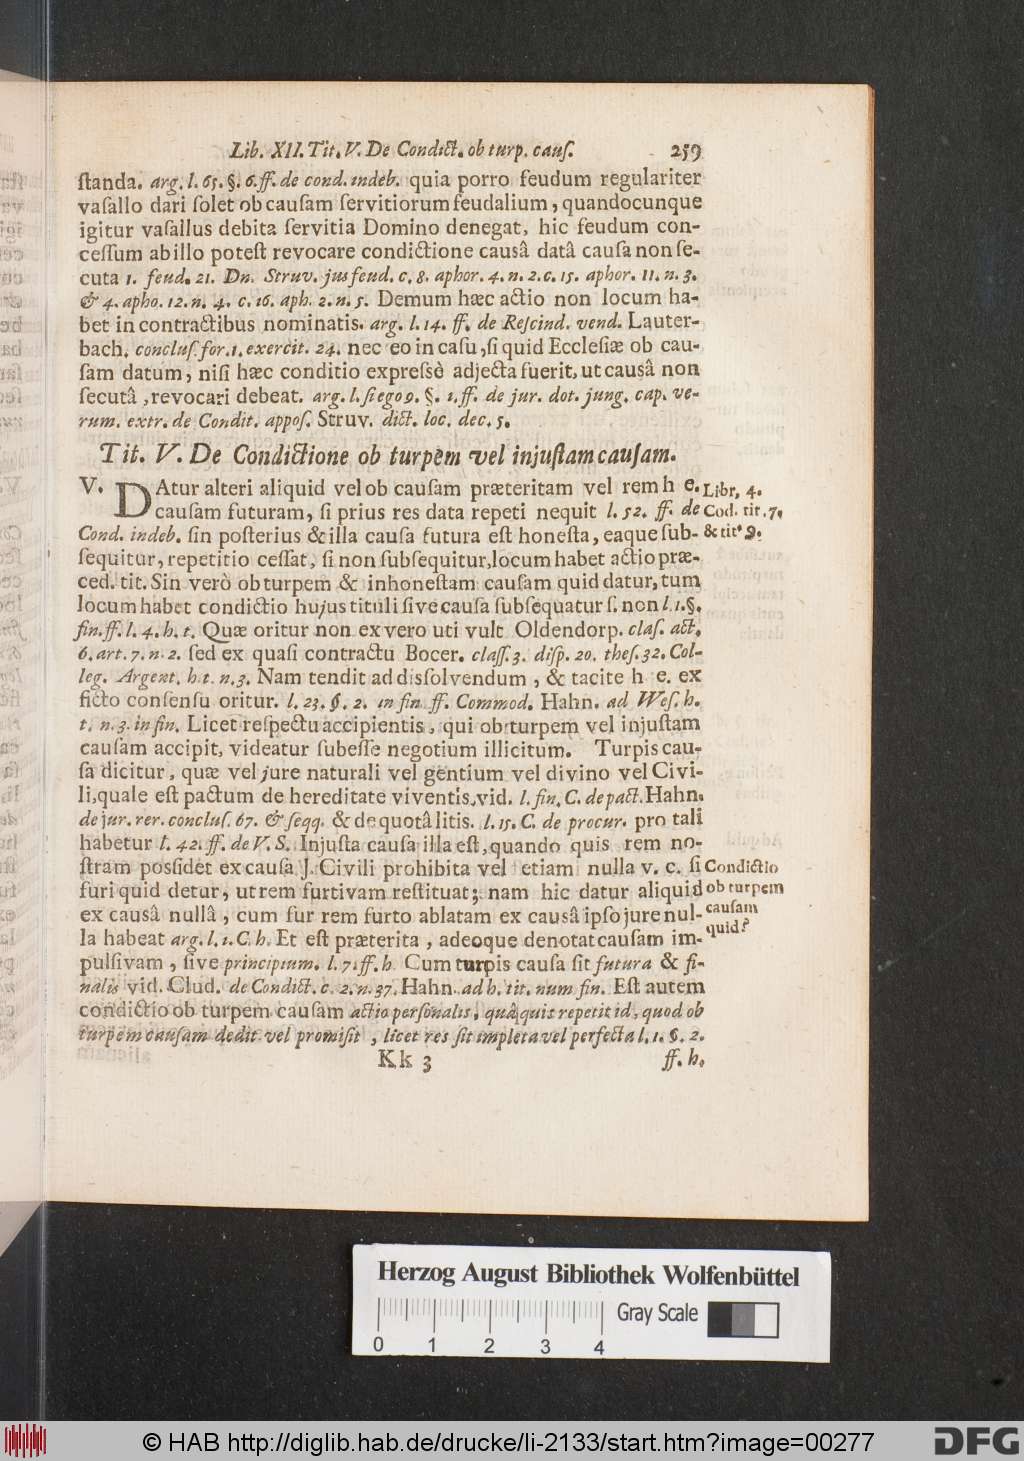 Lib. XII. Tit. V. De Condict. ob turp. cauſ. 259
ſtanda. arg. l. 65. §. 6. ff. de cond. indeb. quia porro feudum regulariter
vaſallo dari ſolet ob cauſam ſervitiorum feudalium, quandocunque
igitur vaſallus debita ſervitia Domino denegat, hic feudum con-
ceſſum ab illo poteſt revocare condictione cauſâ datâ cauſa non ſe-
cuta 1. feud. 21. Dn. Struv. jus feud. c. 8. aphor. 4. n. 2. c. 15. aphor. 11. n. 3.
& 4. apho. 12. n. 4. c. 16. aph. 2. n. 5. Demum hæc actio non locum ha-
bet in contractibus nominatis. arg. l. 14. ff. de Reſcind. vend. Lauter-
bach. concluſ. for. 1. exercit. 24. nec eo in caſu, ſi quid Eccleſiæ ob cau-
ſam datum, niſi hæc conditio expreſsè adjecta fuerit, ut causâ non
ſecutâ, revocari debeat. arg. l. ſi ego 9. §. 1. ff. de jur. dot. jung. cap. ve-
rum. extr. de Condit. appoſ. Struv. dict. loc. dec. 5.
Tit. V. De Condictione ob turpem vel injuſtam cauſam.
V. DAtur alteri aliquid vel ob cauſam præteritam vel rem h e. Libr, 4.
cauſam futuram, ſi prius res data repeti nequit l. 52. ff. de Cod. tit. 7.
Cond. indeb. ſin poſterius & illa cauſa futura eſt honeſta, eaque ſub- & tit. 9.
ſequitur, repetitio ceſſat, ſi non ſubſequitur, locum habet actio præ-
ced. tit. Sin verò ob turpem & inhoneſtam cauſam quid datur, tum
locum habet condictio hujus tituli ſive cauſa ſubſequatur ſ. non l. 1. §.
fin. ff. l. 4. h. t. Quæ oritur non ex vero uti vult Oldendorp. claſ. act.
6. art. 7. n. 2. ſed ex quaſi contractu Bocer. claſſ. 3. diſp. 20. theſ. 32. Col-
leg. Argent. h. t. n. 3. Nam tendit ad diſſolvendum, & tacite h e. ex
ficto conſenſu oritur. l. 23. §. 2. in fin ff. Commod. Hahn. ad Weſ. h.
t. n. 3. in fin. Licet reſpectu accipientis, qui ob turpem vel injuſtam
cauſam accipit, videatur ſubeſſe negotium illicitum. Turpis cau-
ſa dicitur, quæ vel jure naturali vel gentium vel divino vel Civi-
li, quale eſt pactum de hereditate viventis, vid. l. fin. C. de pact. Hahn.
de jur. rer. concluſ. 67. & ſeqq. & de quotâ litis. l. 15. C. de procur. pro tali
habetur l. 42. ff. de V. S. Injuſta cauſa illa eſt, quando quis rem no-
ſtram poſſidet ex cauſa J. Civili prohibita vel etiam nulla v. c. ſi Condictio
furi quid detur, ut rem furtivam reſtituat; nam hic datur aliquid ob turpem
ex causâ nullâ, cum fur rem furto ablatam ex causâ ipſo jure nul- cauſam
la habeat arg. l. 1. C. h. Et eſt præterita, adeoque denotat cauſam im- quid?
pulſivam, ſive principium. l. 7. ff. h. Cum turpis cauſa ſit futura & fi-
nalis vid. Clud. de Condict. c. 2. n. 37. Hahn. ad h. tit. num fin. Eſt autem
condictio ob turpem cauſam actio perſonalis, quâ, quis repetit id, quod ob
turpem cauſam dedit vel promiſit, licet res ſit impleta vel perfecta l. 1. §. 2.
Kk 3 ff. h.
Herzog August Bibliothek Wolfenbüttel
Gray Scale
0 1 2 3 4
© HAB http://diglib.hab.de/drucke/li-2133/start.htm?image=00277 DFG